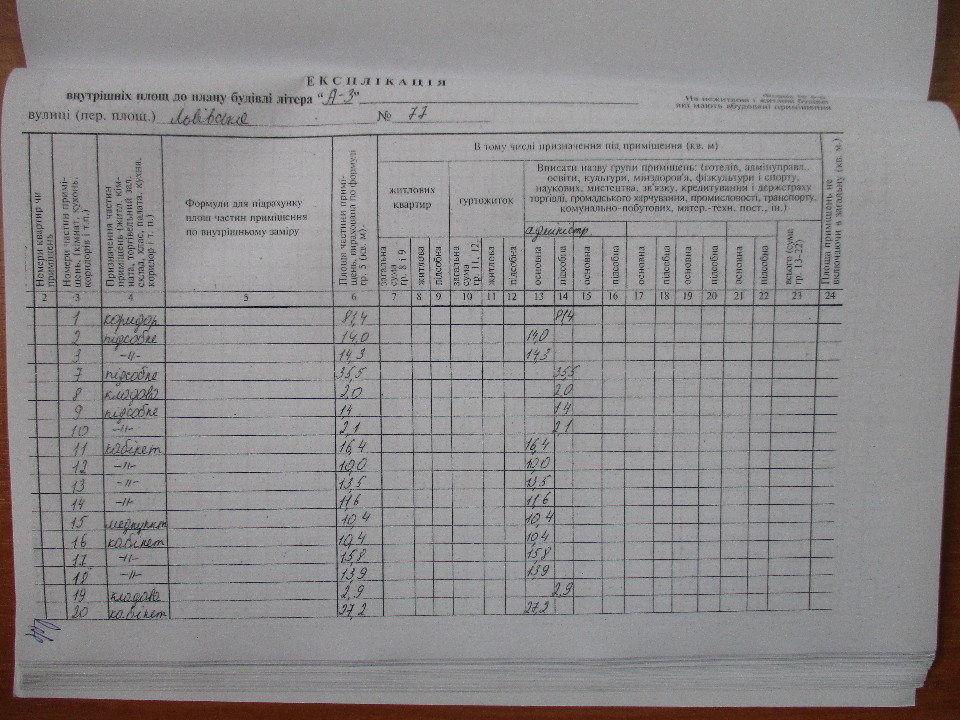 ЕКСПЛІКАЦІЯ
внутрішніх площ до плану будівлі літера "А-3"
вулиці (пер. площ.) № 77
На нежитлові і житлові будинки
які мають вбудовані приміщення
Номери квартир чи приміщень
Номери частин приміщень, (кімнат, кухонь, коридорів і т.п.)
Призначення частин приміщень (житл. кімната, торгівельний зал, склад, клас, палата, кухня, коридор і т. п.)
Формули для підрахунку
площ частин приміщення
по внутрішньому заміру
Площа частини приміщень, вирахована по формулі гр. 5 (кв. м)
В тому числі призначення під приміщення (кв. м)
житлових квартир
гуртожиток
Вписати назву групи приміщень: (готелів, адмінуправл.,
освіти, культури, міноздоров'я, фізкультури і спорту,
наукових, мистецтва, зв'язку, кредитування і держстраху
торгівлі, громадського харчування, промисловості, транспорту,
комунально-побутових, матер.-техн. пост., ін.)
адміністр.
загальна сума гр. 8 і 9
житлова
підсобна
загальна сума гр. 11, 12.
житлова
підсобна
основна
підсобна
основна
підсобна
основна
підсобна
основна
підсобна
основна
підсобна
всього (сума гр. 13–22)
Площа приміщень не включаючи в загальну (кв. м.)
2 3 4 5 6 7 8 9 10 11 12 13 14 15 16 17 18 19 20 21 22 23 24
1 коридор 81,4 81,4
2 підсобне 14,0 14,0
3 -//- 14,3 14,3
7 підсобне 35,5 35,5
8 кладова 2,0 2,0
9 підсобне 14 14
10 -//- 2,1 2,1
11 кабінет 16,4 16,4
12 -//- 19,0 19,0
13 -//- 13,5 13,5
14 -//- 11,6 11,6
15 медпункт 10,4 10,4
16 кабінет 10,4 10,4
17 -//- 15,8 15,8
18 -//- 13,9 13,9
19 кладова 2,9 2,9
20 кабінет 27,2 27,2